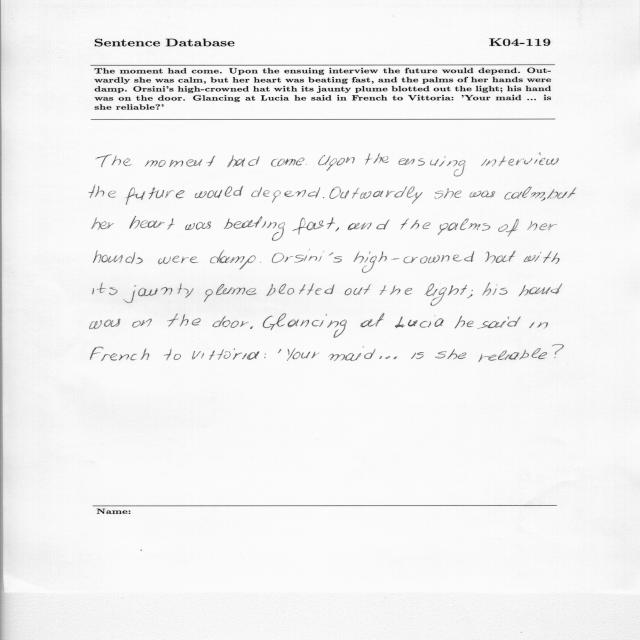 Sentence Database K04-119
The moment had come. Upon the ensuing interview the future would depend. Out-
wardly she was calm, but her heart was beating fast, and the palms of her hands were
damp. Orsini's high-crowned hat with its jaunty plume blotted out the light; his hand
was on the door. Glancing at Lucia he said in French to Vittoria: 'Your maid ... is
she reliable?'
The moment had come. Upon the ensuing interview
the future would depend. Outwardly she was calm, but
her heart was beating fast, and the palms of her
hands were damp. Orsini's high-crowned hat with
its jaunty plume blotted out the light; his hand
was on the door. Glancing at Lucia he said in
French to Vittoria: 'Your maid... is she reliable?
Name: